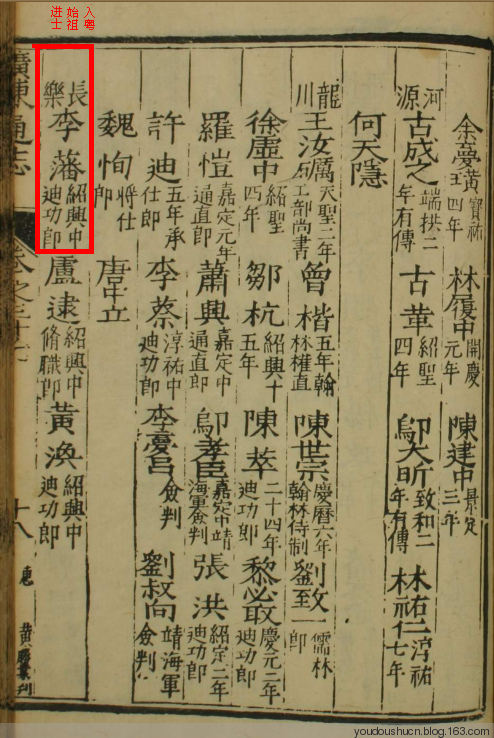 入粤
始祖
进士
余夢黃寶祐四年 林履中開慶元年 陳建中景定三年
河源 古成之端拱二年有傳 古革紹聖四年 鄔大昕致和二年有傳 林祐仁淳祐七年
何天隱
龍川 王汝礪天聖二年工部尚書 曾楷五年翰林權直 陳世宗慶曆六年翰林侍制 劉致一儒林郎
徐虛中紹聖四年 鄒杭紹興十五年 陳萃二十四年迪功郎 黎必敢慶元二年迪功郎
羅愷嘉定元年通直郎 蕭興嘉定中通直郎 鄔孝臣嘉定中靖海軍僉判 張洪紹定二年迪功郎
許迪五年承仕郎 李蔡淳祐中迪功郎 李憂昌僉判 劉叔向靖海軍僉判
魏恂將仕郎 唐中立
長樂 李藩紹興中迪功郎 盧逮紹興中脩職郎 黃渙紹興中迪功郎
廣東通志 卷之三十 十八
youdoushucn.blog.163.com